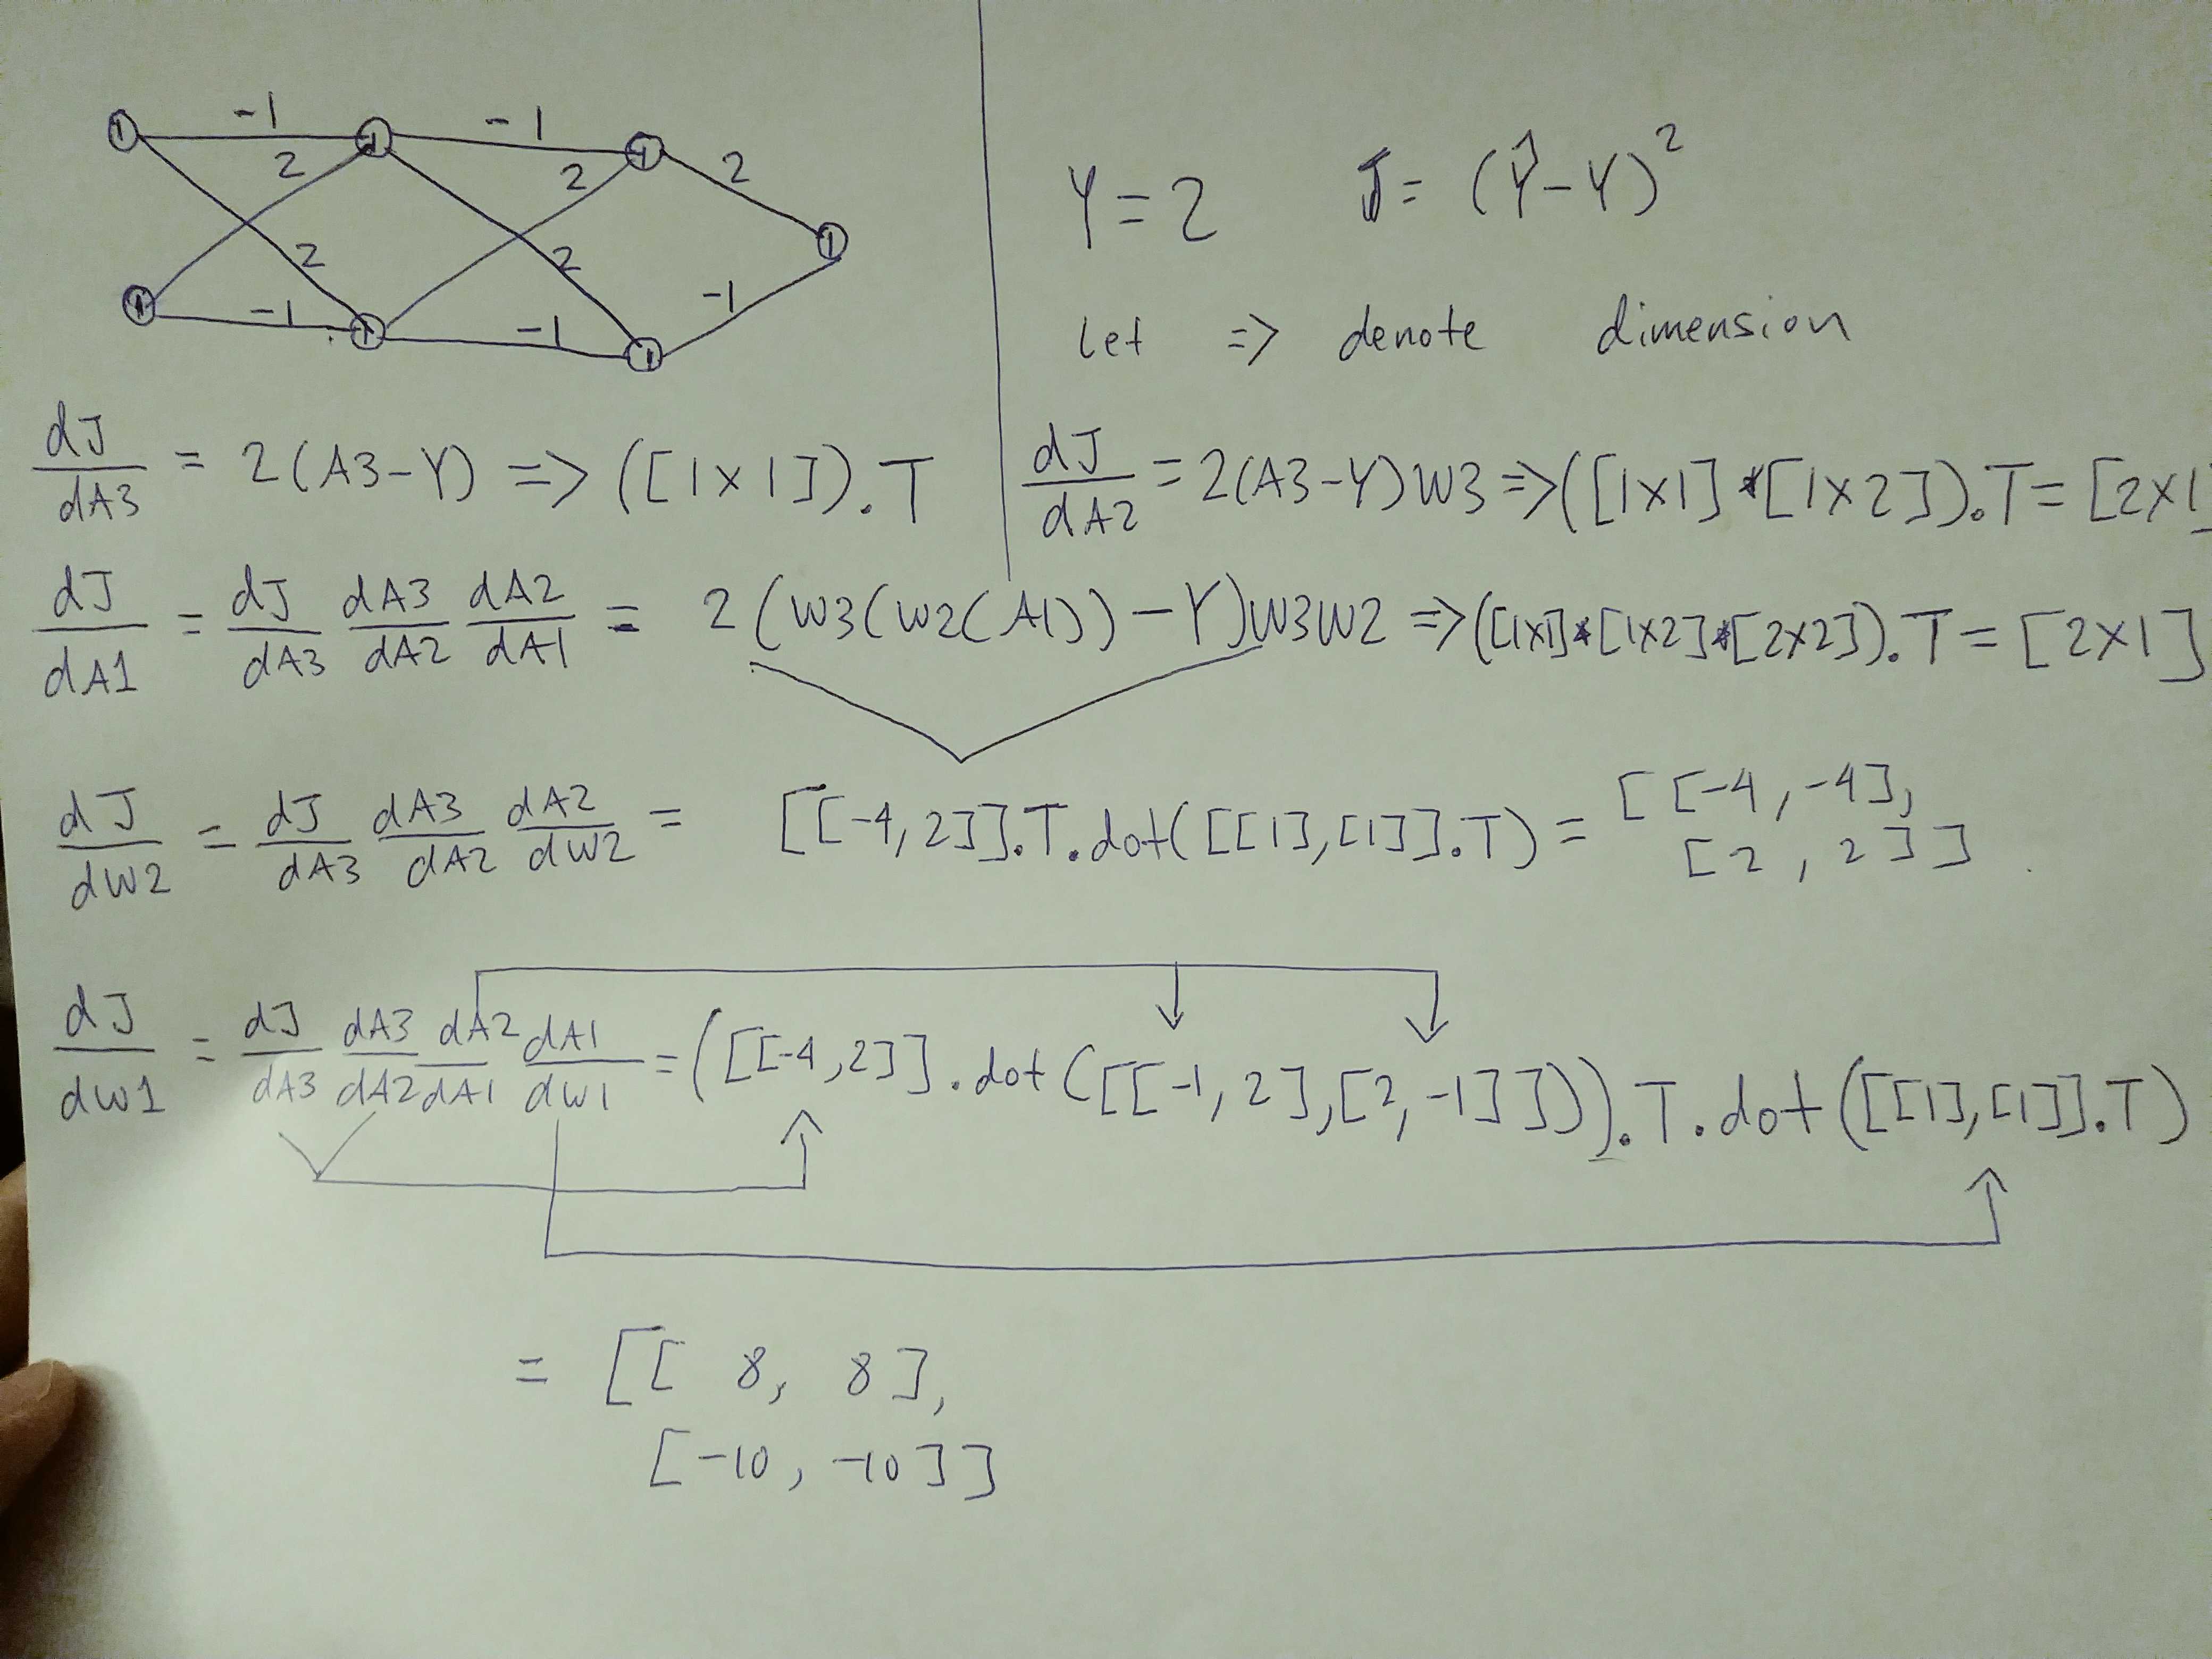 -1 -1
1 2 1 2 1 2
Y=2 J= (Ŷ-Y)²
1
2 2
-1
1 -1 1 -1 1
Let => denote dimension
dJ/dA3 = 2(A3-Y) => ([1x1]).T
dJ/dA2 = 2(A3-Y)W3 => ([1x1]*[1x2]).T = [2x1]
dJ/dA1 = dJ/dA3 dA3/dA2 dA2/dA1 = 2(W3(W2(A1))-Y)W3W2 => ([1x1]*[1x2]*[2x2]).T = [2x1]
dJ/dW2 = dJ/dA3 dA3/dA2 dA2/dW2 = [[-4,2]].T.dot([[1],[1]].T) = [[-4,-4],
[2, 2]]
dJ/dW1 = dJ/dA3 dA3/dA2 dA2/dA1 dA1/dW1 = ([[-4,2]].dot([[-1,2],[2,-1]])).T.dot([[1],[1]].T)
= [[ 8, 8],
[-10, -10]]